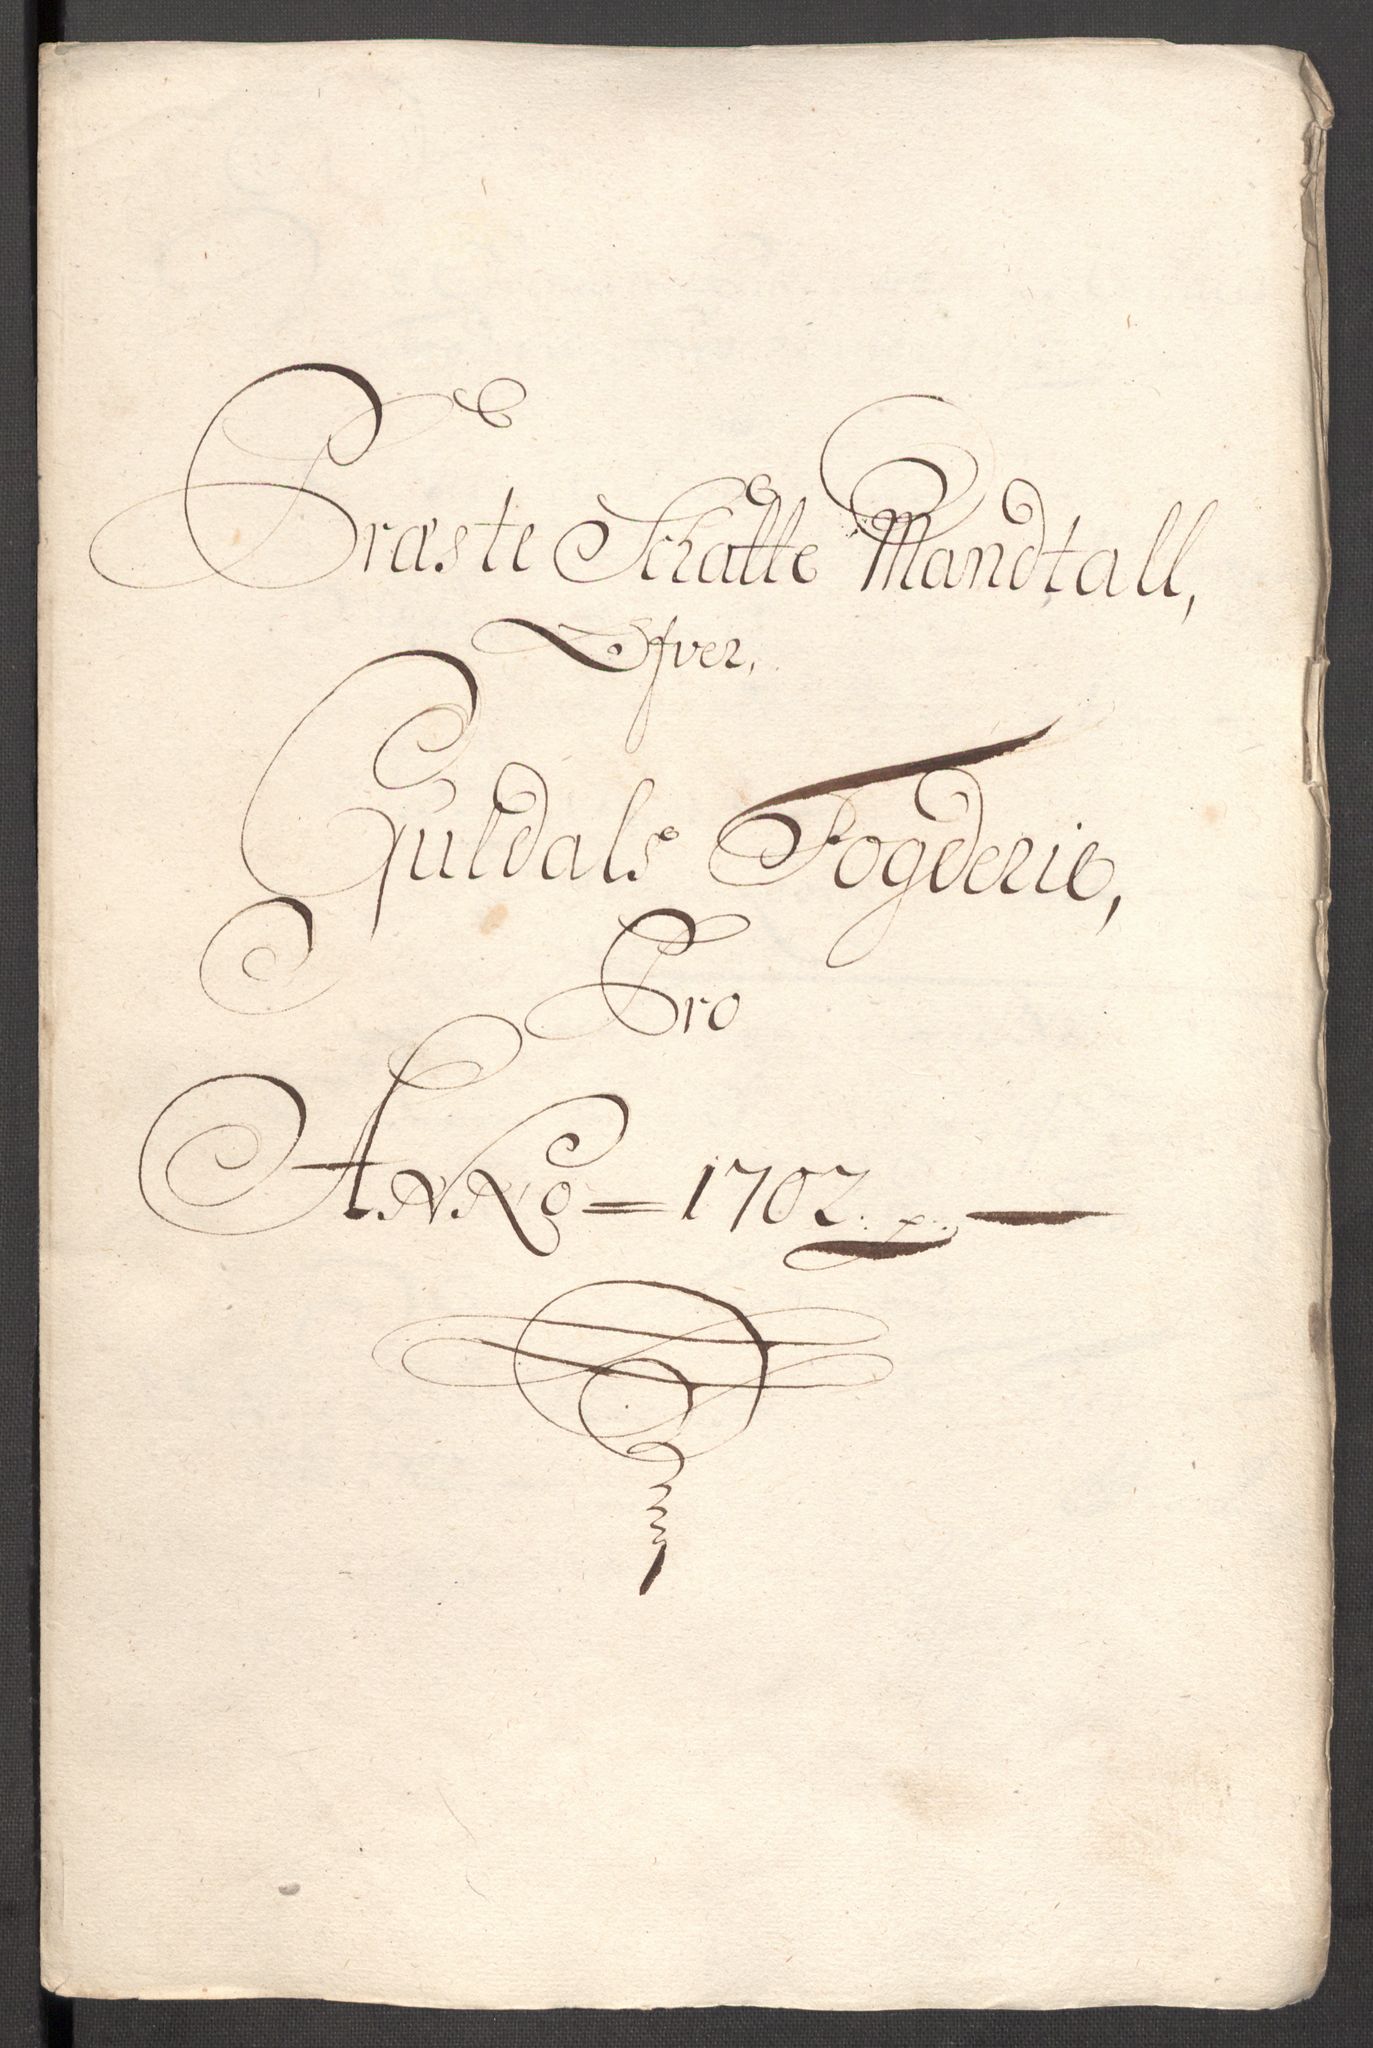 Præste Schatte Mandtall,
Ofver,
Guldals Fogderie,
Pro
ANNO = 1702.